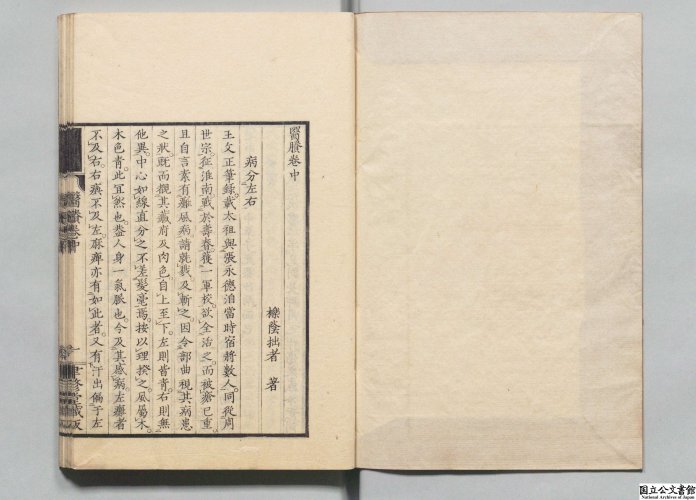 醫賸卷中
櫟蔭拙者 著
病分左右
王文正筆錄載太祖與張永德洎當時宿將數人同從周
世宗征淮南戰於壽春獲一軍校欲全治之而被瘡已重
且自言素有癱風病請就戮及斬之因令部曲視其病患
之狀既而觀其臟府及肉色自上至下左則皆青右則無
他異中心如線直分之不差髮毫焉按以理揆之風屬木
木色青此宜然也盖人身一氣脈也今及其感病左癱者
不及右右瘓不及左麻痺亦有如此者又有汗出偏于左
醫賸卷中
一
聿修堂藏板
国立公文書館
National Archives of Japan